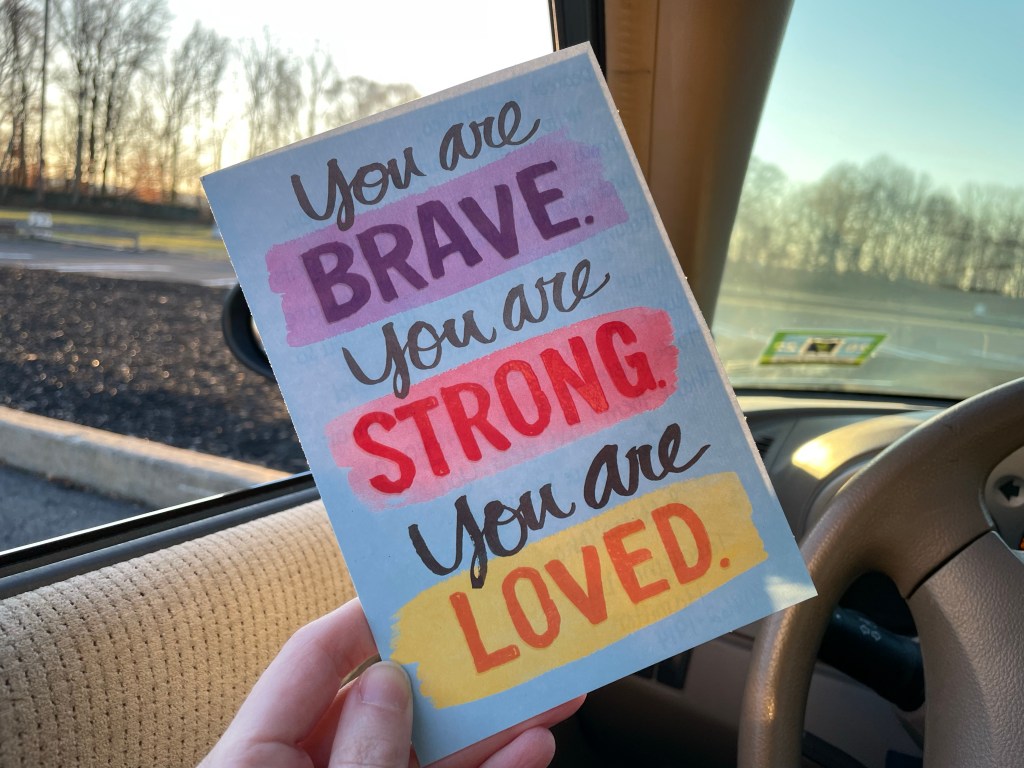 You are
BRAVE.
You are
STRONG.
You are
LOVED.